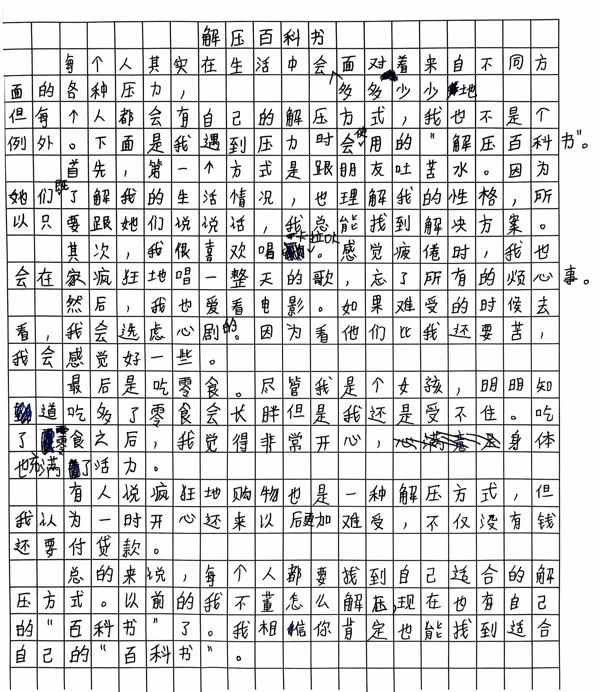 解压百科书
每个人其实在生活中会面对着来自不同方
面的各种压力，多多少少地
但每个人都会有自己的解压方式，我也不是个
例外。下面是我遇到压力时会使用的“解压百科书”。
首先，第一个方式是跟朋友吐苦水。因为
她们既了解我的生活情况，也理解我的性格，所
以只要跟她们说说话，我总能找到解决方案。
其次，我很喜欢唱卡拉OK。感觉疲倦时，我也
会在家疯狂地唱一整天的歌，忘了所有的烦心事。
然后，我也爱看电影。如果难受的时候去
看，我会选虑心剧的。因为看他们比我还要苦，
我会感觉好一些。
最后是吃零食。尽管我是个女孩，明明知
道吃多了零食会长胖但是我还是受不住。吃
了零食之后，我觉得非常开心，身体
也充满了活力。
有人说疯狂地购物也是一种解压方式，但
我认为一时开心还来以后更加难受，不仅没有钱
还要付贷款。
总的来说，每个人都要找到自己适合的解
压方式。以前的我不董怎么解压，现在也有自己
的“百科书”了。我相信你肯定也能找到适合
自己的“百科书”。